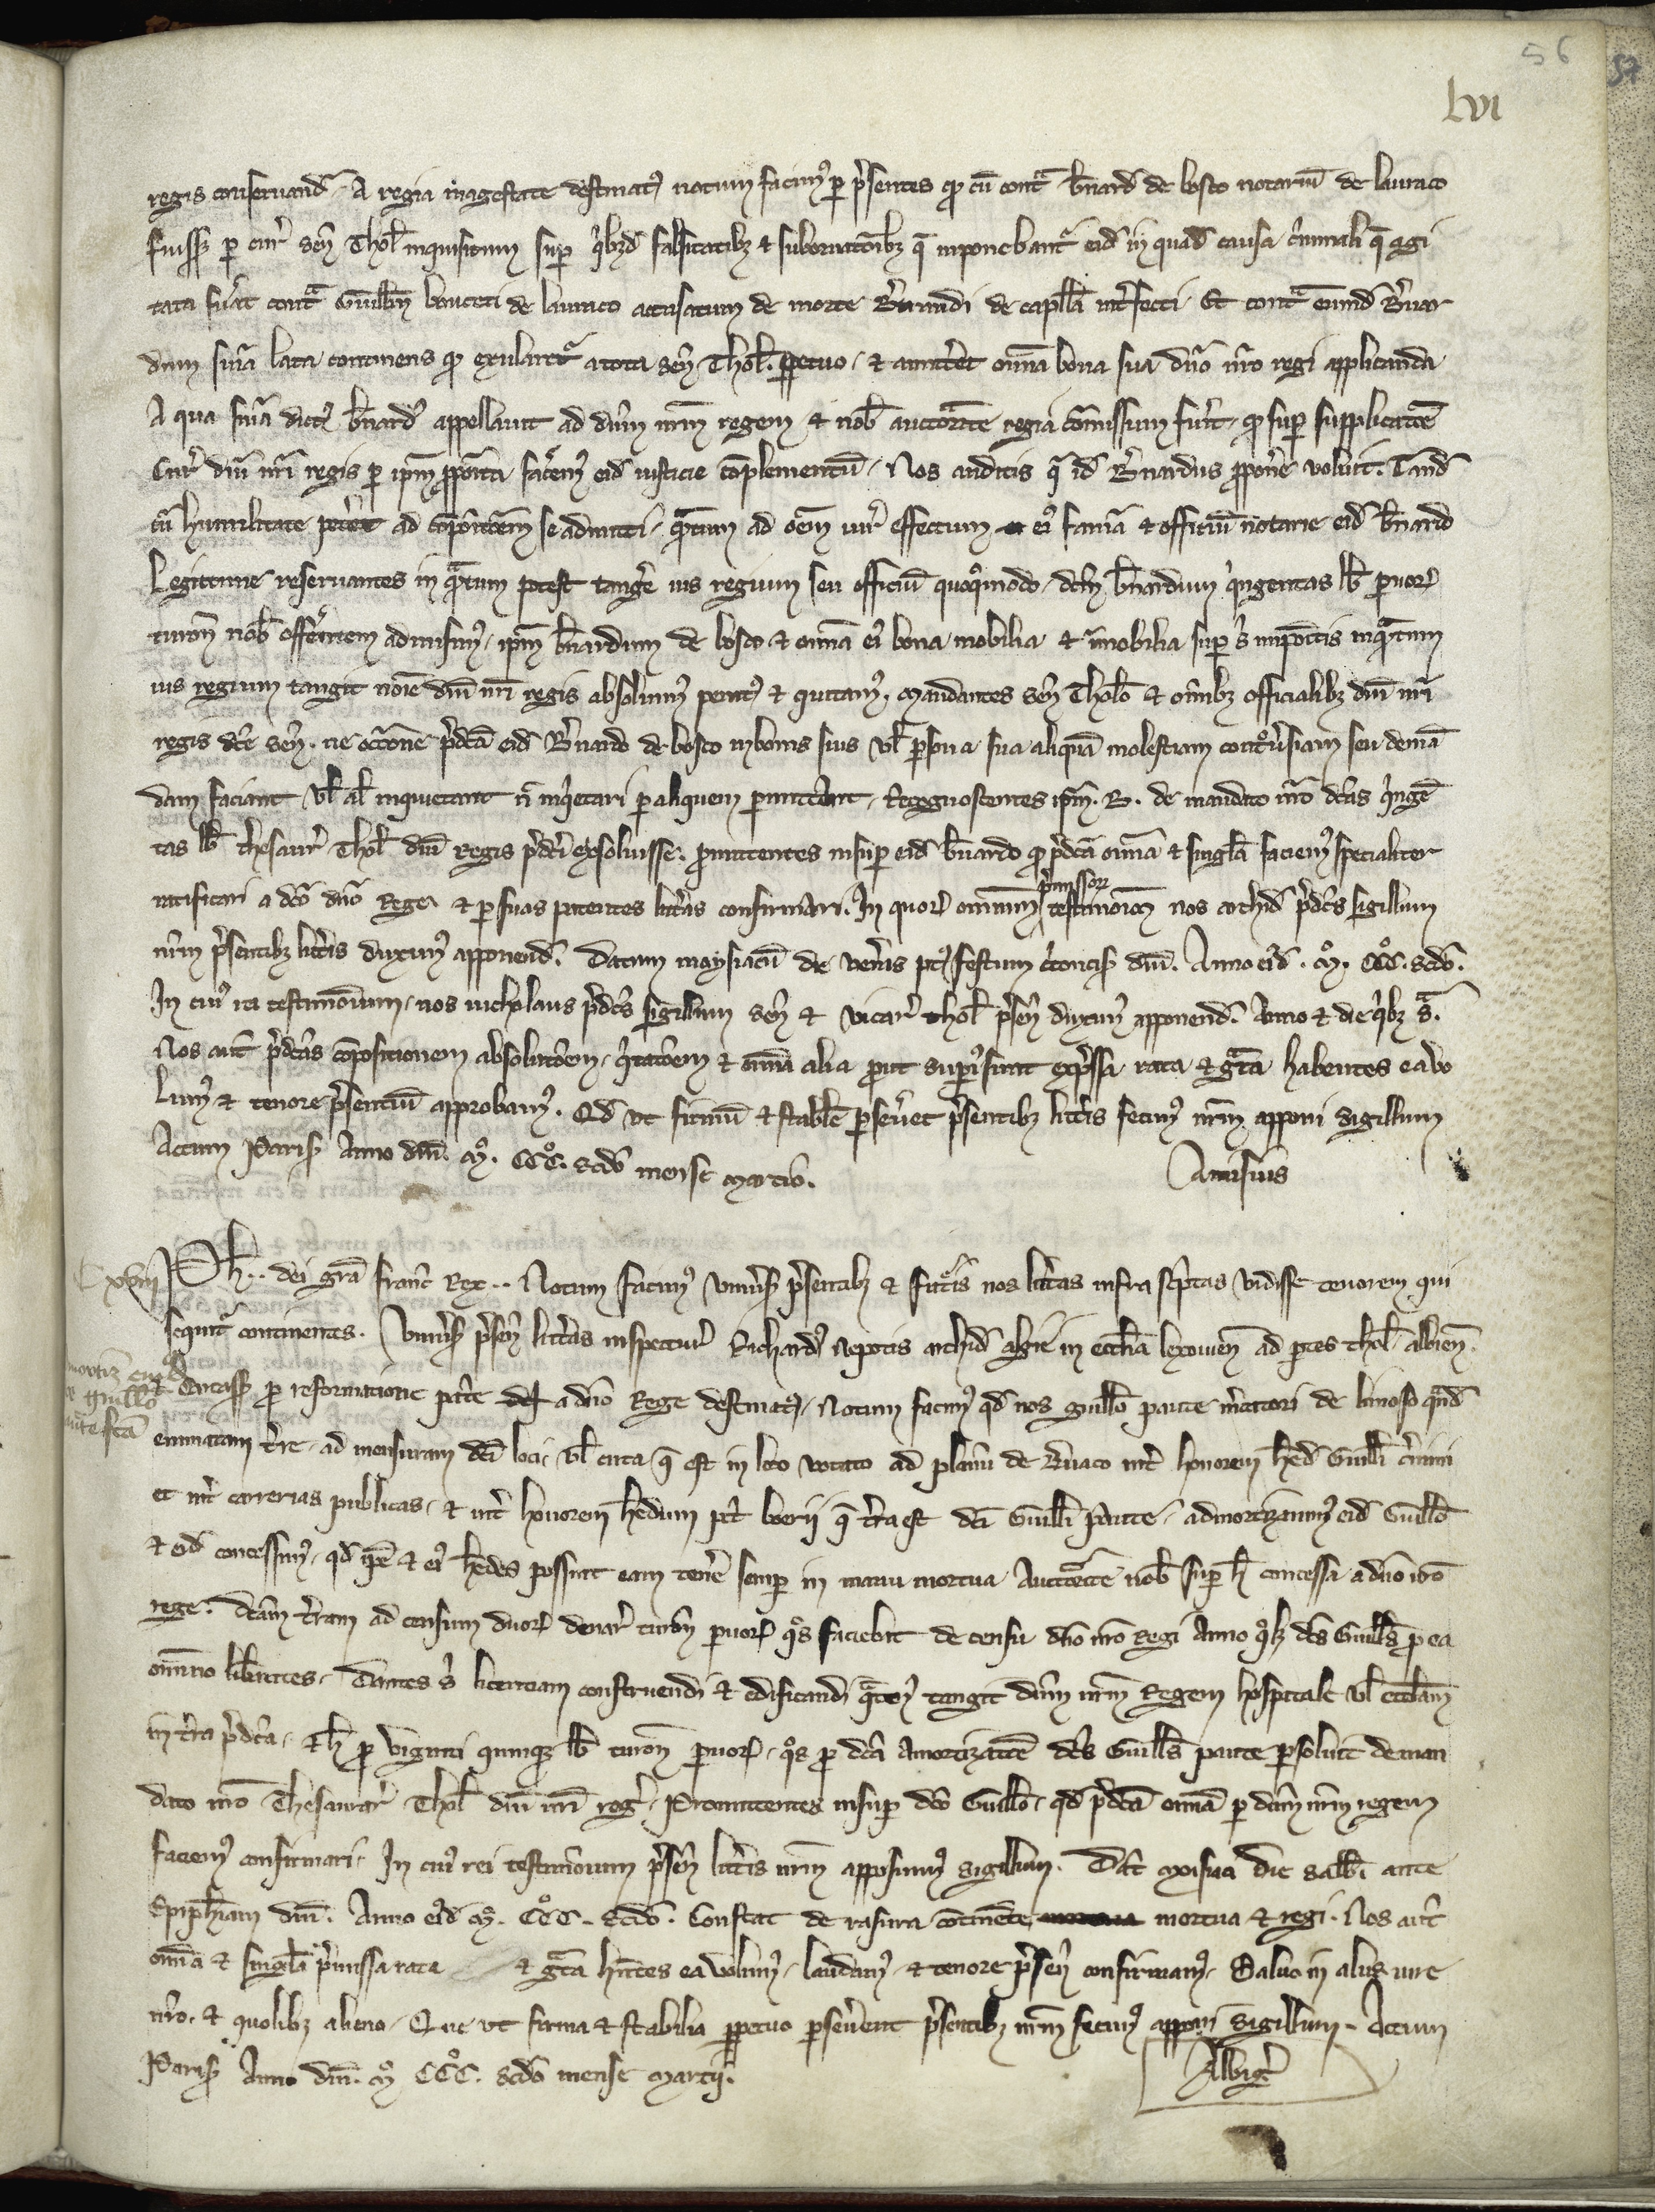 56
57
LVI
regis conseruand. A regia magestate destinatus notum facimus per presentes quod cum contra bernard de bosco notarium de lauraco
fuisset per cur sen Thol inquisitum super quibusdam falsitatibus et subornationibus que imponebantur eid in quadam causa criminali que agi
tata fuerat contra Guillm bonceti de lauraco accusatum de morte Bernardi de capella interfecti. Et contra eumd Bernar
dum sententia lata continens quod exularetur a tota sen Thol. perpetuo. et amitteret omnia bona sua domino nostro regi applicanda
A qua sententia dictus bernardus appellauit ad dominum nostrum regem et nobis auctoritate regia commissum fuerit quod super supplicatione
Curie domini nostri regis per ipsum proposita faceremus eid iusticie complementum. Nos auditis que idem Bernardus proponere voluit. Tandem
cum humilitate peteret ad compositionem se admitti. quantum ad omnem iuris effectum eius fama et officium notarie eid bernardo
Legittime reseruantes in quantum potest tangere ius regium seu officium quoquomodo. dictum bernardum quingentas lb paruorum
turon nobis offerentem admisimus. ipsum bernardum de bosco et omnia eius bona mobilia et immobilia super sibi impositis inquantum
ius regium tangit nomine domini nostri regis absoluimus penitus et quitamus. mandantes sen Tholo et omnibus officialibus domini nostri
regis dicte sen. ne occasione predicta eid Bernardo de bosco in bonis suis vel persona sua aliquam molestiam controuersiam seu deman
dam faciant vel al inquietant nec inquietari per aliquem permittant. Recognoscentes ipsum. B. de mandato nostro dictas quingen
tas lb thesaur Thol domini Regis predicti exsoluisse. promittentes insuper eid bernardo quod predicta omnia et singula faciemus specialiter
ratificari a dicto domino Rege et per suas patentes litteras confirmari. In quorum omnium premissorum testimonium nos archid predictus sigillum
nostrum presentibus litteris duximus apponend. Datum moysiacum die veneris post festum circoncis domini. Anno eiusd. M. CCC. scdo.
In cuius rei testimonium. nos nicholaus predictus sigillum sen et vicar Thol presen duximus apponend. Anno et die quibus supra.
Nos autem predictas compositionem absolutionem. quitationem et omnia alia prout superius sunt expressa rata et grata habentes ea vo
lumus et tenore presentium approbamus. Quod ut firmum et stabile perseueret presentibus litteris fecimus nostrum apponi sigillum
Actum Paris Anno domini. M. CCC. scdo mense Martio.
Ph.. dei gra Franc Rex.. Notum facimus vniuersis presentibus et futuris nos litteras infra scriptas vidisse tenorem qui
sequitur continentes. Vniuersis presen litteras inspecturis Richardus Nepotis archid algie in ecclesia lexouien ad partes thol albien
et Carcass pro reformatione patrie a domino Rege destinatus. Notum facimus quod nos guillo paute mercatori de limoso quand
eminatam terre. ad mensuram dicti loci. vel circa que est in loco vocato ad planum de Bernaco inter honorem hered Guilli
et inter carrerias publicas. et inter honorem heredum pet boerij que terra est dicti Guilli paute. admortizamus eid Guillo
et eid concessimus. quod ipse et eius heredes possint eam tenere semper in manu mortua Auctoritate nobis super hoc concessa a domino nostro
rege. dictam terram ad censum duorum denar turon paruorum quos faciebat de censu domino nostro Regi Anno quolibet dictus Guills pro ea
omnino liberantes. Dantes sibi licentiam construendi et edificandi quantum tangit dominum nostrum Regem hospitale vel ecclesiam
in terra predicta. Et hoc pro viginti quinque lb turon paruorum. quos pro dicta amortizatione dictus Guills paute persoluit de man
dato nostro Thesaurar Thol domini nostri reg. Promittentes insuper dicto Guillo. quod predicta omnia per dominum nostrum regem
faciemus confirmari. In cuius rei testimonium presen litteris nostrum apposuimus sigillum. Dat moisiaci die sabbi ante
Epiphaniam domini. Anno eiusd M. CCC. scdo. Constat de rasura continente mortua et regi. Nos autem
omnia et singula premissa rata et grata habentes ea volumus. laudamus. et tenore presen confirmamus. Saluo in aliis iure
nostro. et quolibet alieno. Que ut firma et stabilia perpetuo perseuerent presentibus nostrum fecimus apponi sigillum. Actum
Paris Anno domini. M CCC. scdo mense Martij.
Albig